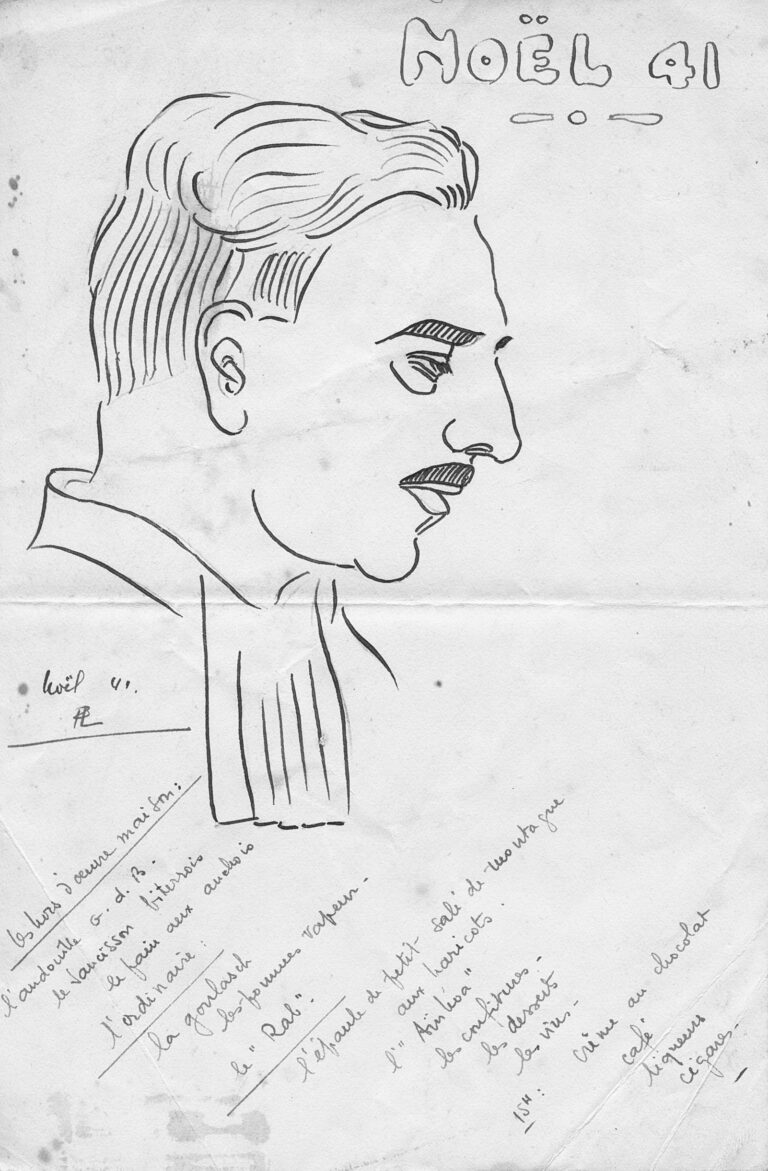 NOËL 41
Noël 41.
PL
les hors d'œuvre maison:
l'andouille G. d. B.
le saucisson biterrois
le pain aux anchois
l'ordinaire:
la goulasch
les pommes vapeur.
le "Rab".
l'épaule de petit salé de montagne
aux haricots.
l'"Aïnhoa"
les confitures.
les desserts
les vins.
15H:
crème au chocolat
café
liqueurs
cigares.